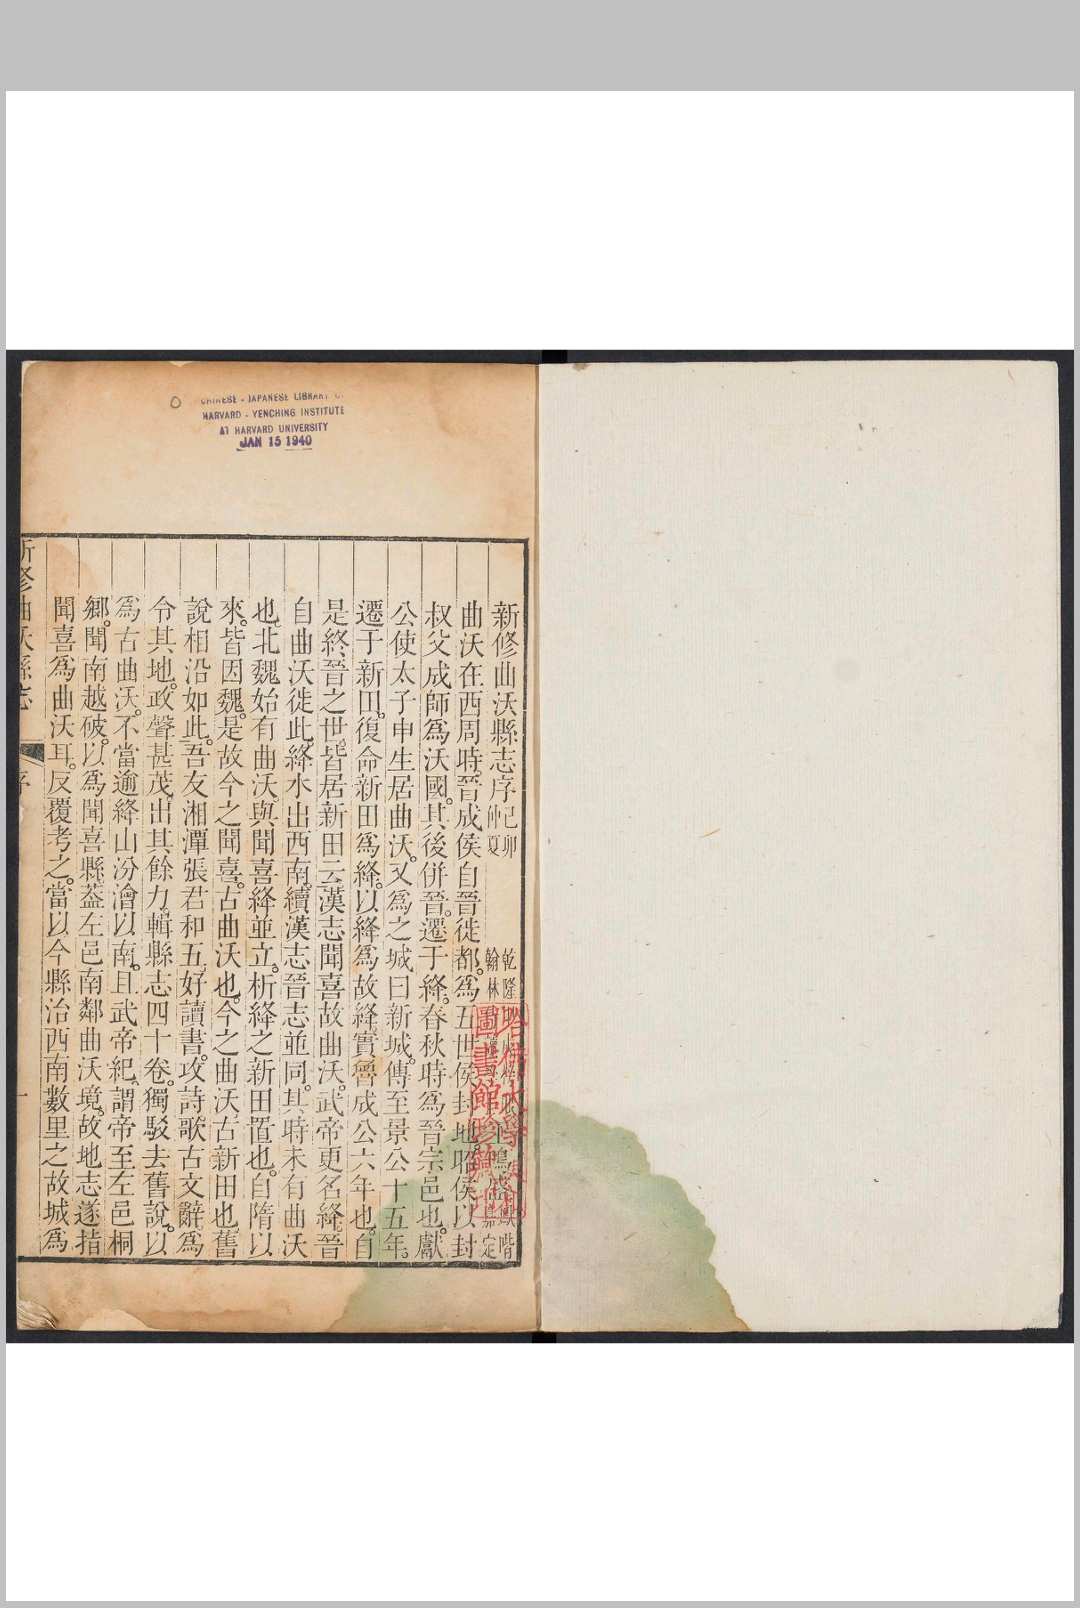 CHINESE - JAPANESE LIBRARY
HARVARD - YENCHING INSTITUTE
AT HARVARD UNIVERSITY
JAN 15 1940
新修曲沃縣志序 己卯仲夏 乾隆 翰林 嘉定
曲沃在西周時。晉成侯自晉徙都。爲五世侯封地。昭侯以封
叔父成師爲沃國。其後併晉。遷于絳。春秋時爲晉宗邑也。獻
公使太子申生居曲沃。又爲之城曰新城。傳至景公十五年。
遷于新田。復命新田爲絳。以絳爲故絳。實魯成公六年也。自
是終晉之世。皆居新田云。漢志聞喜故曲沃。武帝更名絳。晉
自曲沃徙此。絳水出西南。續漢志晉志並同。其時未有曲沃
也。北魏始有曲沃。與聞喜絳並立。析絳之新田置也。自隋以
來。皆因魏。是故今之聞喜。古曲沃也。今之曲沃。古新田也。舊
說相沿如此。吾友湘潭張君和五。好讀書。攻詩歌古文辭。爲
令其地。政聲甚茂。出其餘力。輯縣志四十卷。獨駁去舊說。以
爲古曲沃。不當逾絳山汾澮以南。且武帝紀。謂帝至左邑桐
鄉。聞南越破。以爲聞喜縣。葢左邑南鄰曲沃境。故地志遂指
聞喜爲曲沃耳。反覆考之。當以今縣治西南數里之故城爲
新修曲沃縣志 序 一
哈佛大學
圖書館珍藏印